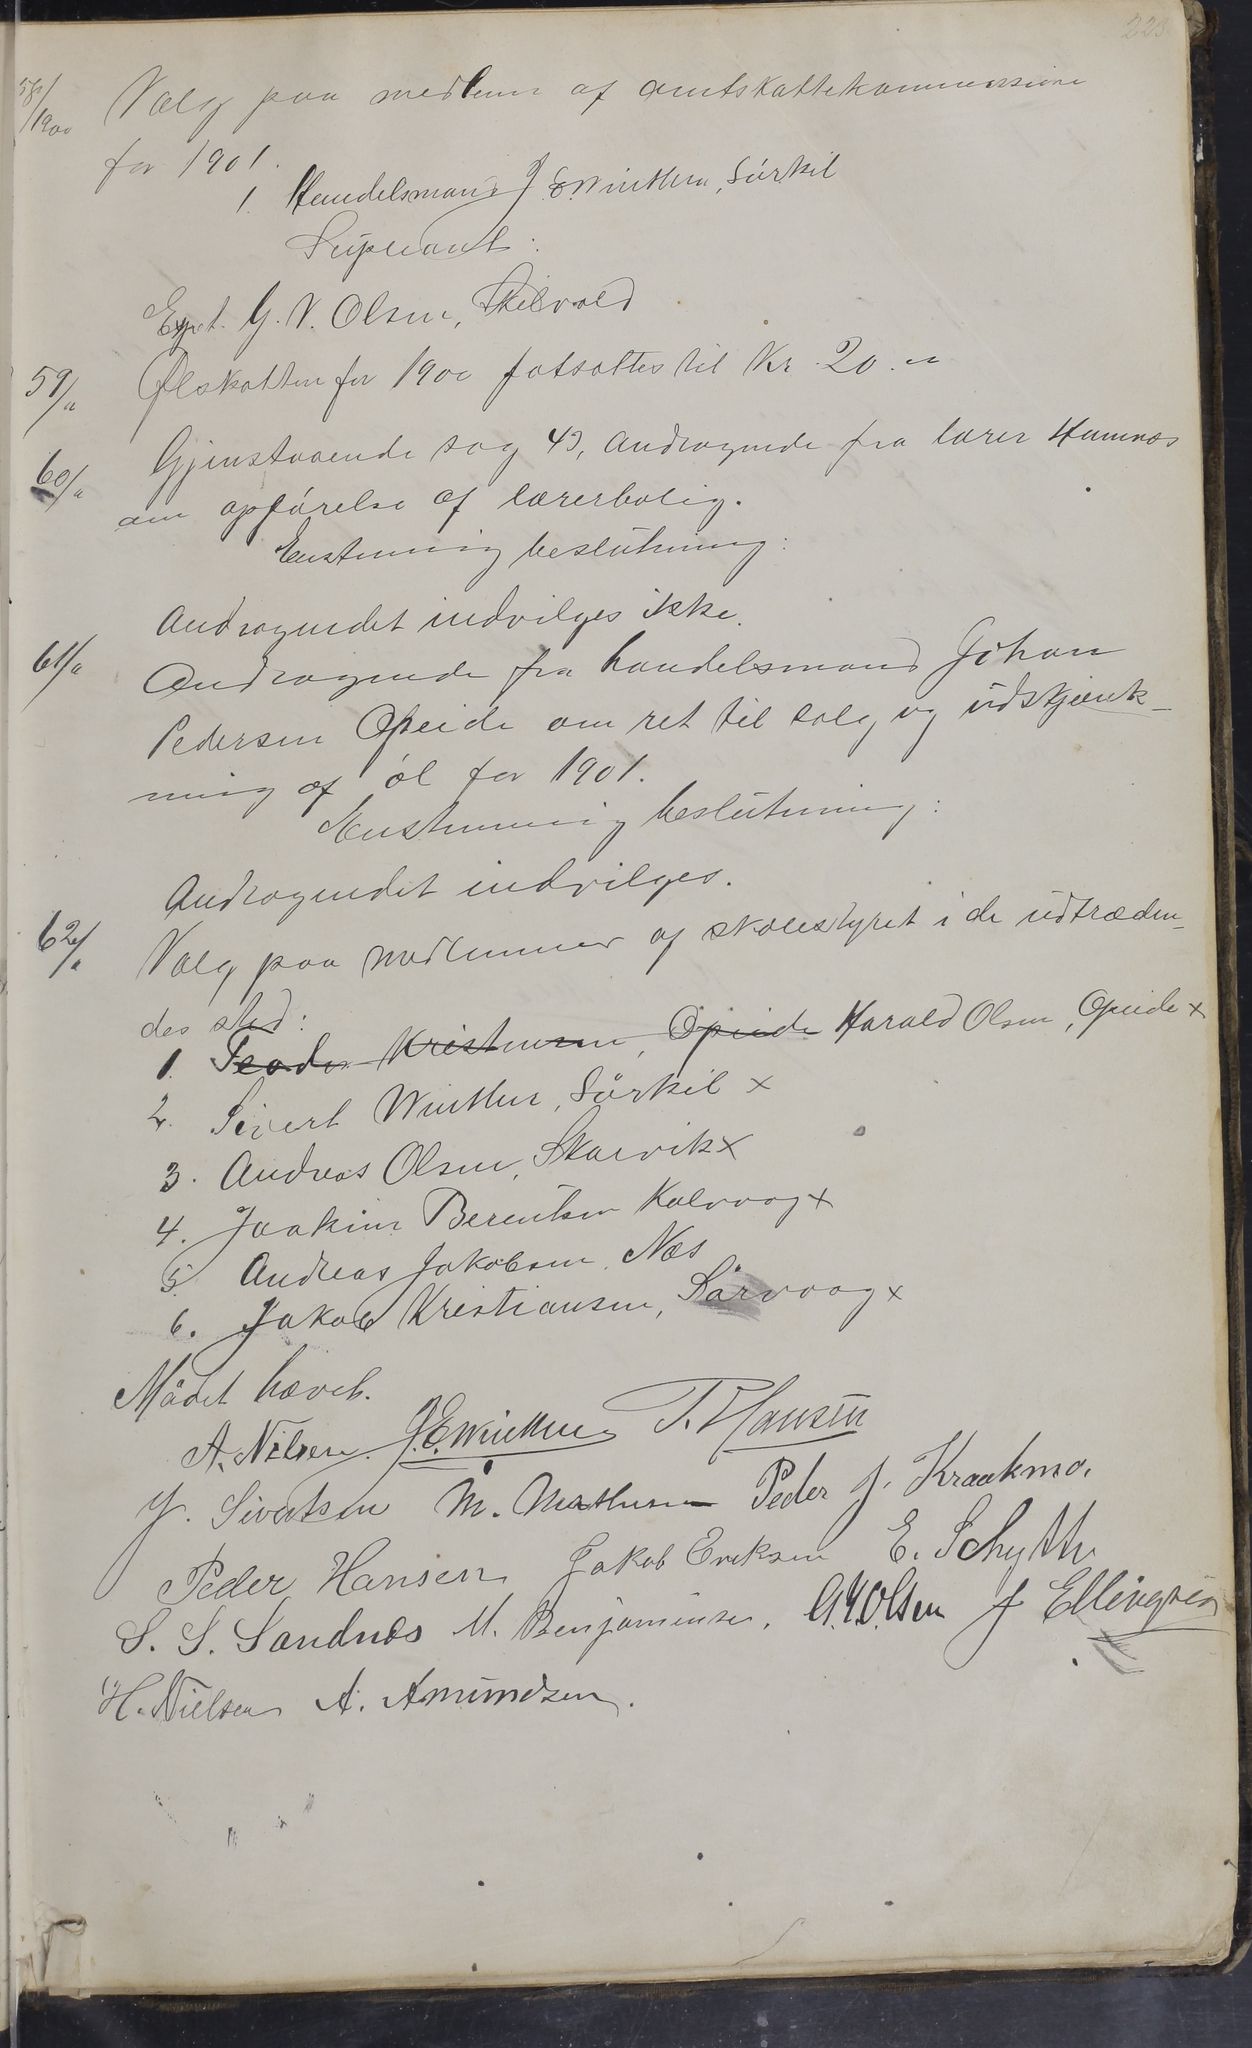 223
58/1900 Valg paa medlem af amtskattekommissionen
for 1901.
1. Handelsmand J. E. Winther, Sørkil
Supleant:
Expt. G. V. Olsen, Skilvold
59/" Ølskatten for 1900 fatsattes til Kr. 20.00
60/" Gjenstaaende sag 43, Andragende fra lærer Hamnæs
om opførelse af lærerbolig.
Enstemmig beslutning:
Andragendet indvilges ikke.
61/" Andragende fra handelsmand Johan
Pedersen Opeide om ret til salg og udskjænk-
ning af øl for 1901.
Enstemmig beslutning:
Andragendet indvilges.
62/" Valg paa medlemmer af skolestyret i de udtræden-
des sted:
1. Teodor Kristensen, Opeide Harald Olsen, Opeide x
2. Sivert Winther, Sørkil x
3. Andreas Olsen, Skarvik x
4. Joakim Berentsen Kalvaag x
5. Andreas Jakobsen, Næs
6. Jakob Kristiansen, Sørvaag x
Mødet hævet.
A. Nilsen J. E. Winther T. Hansen
J. Sivertsen M. Mathisen Peder J. Kraakmo.
Peder Hansen Jakob Eriksen E. Schytte
S. S. Sandnæs M. Benjaminsen. G. V. Olsen J Ellingsen
H. Nielsen A. Amundsen.